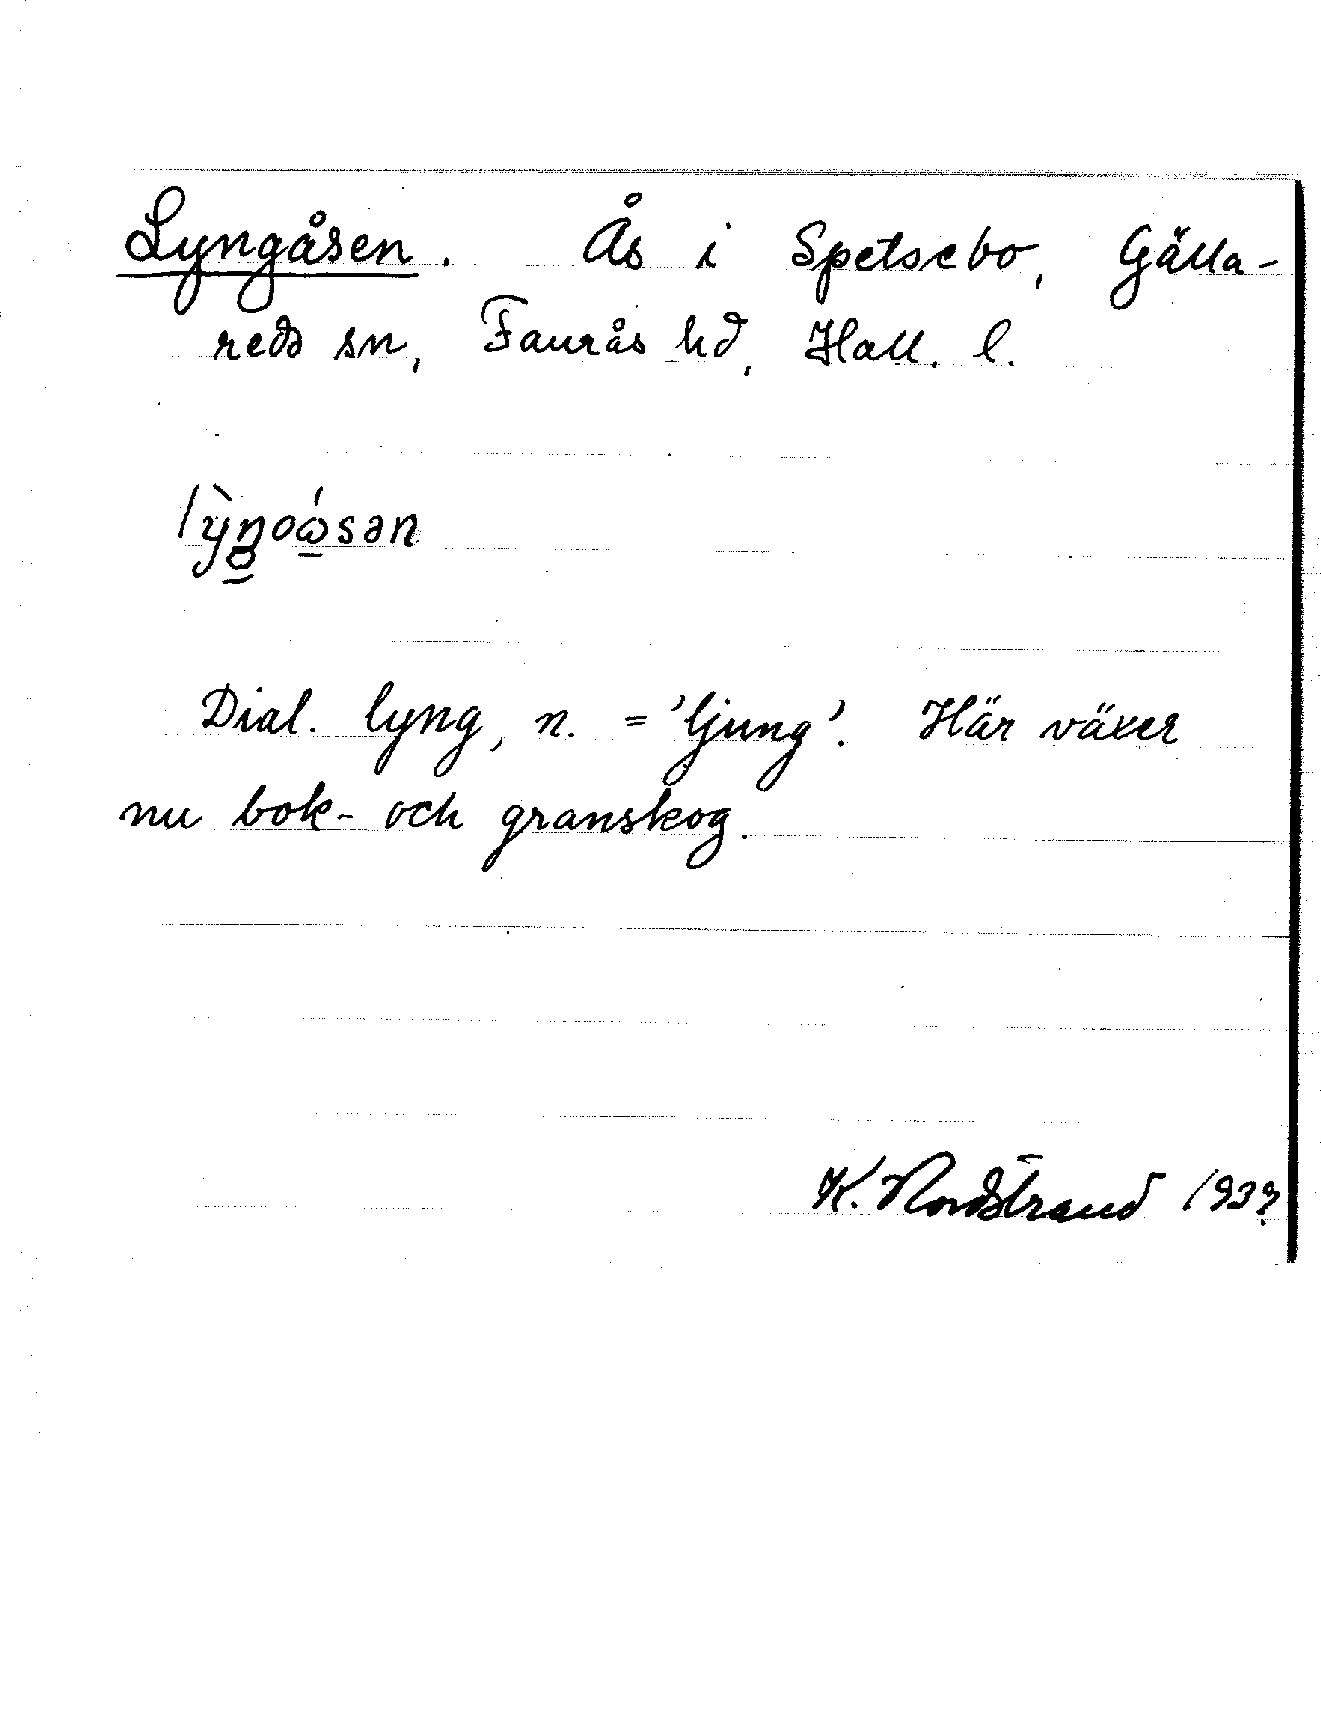 Lyngåsen. Ås i Spetsebo, Gälla-
reds sn, Faurås hd, Hall. l.
Dial. lyng, n. = 'ljung'. Här växer
nu bok- och granskog.
K. Nordstrand